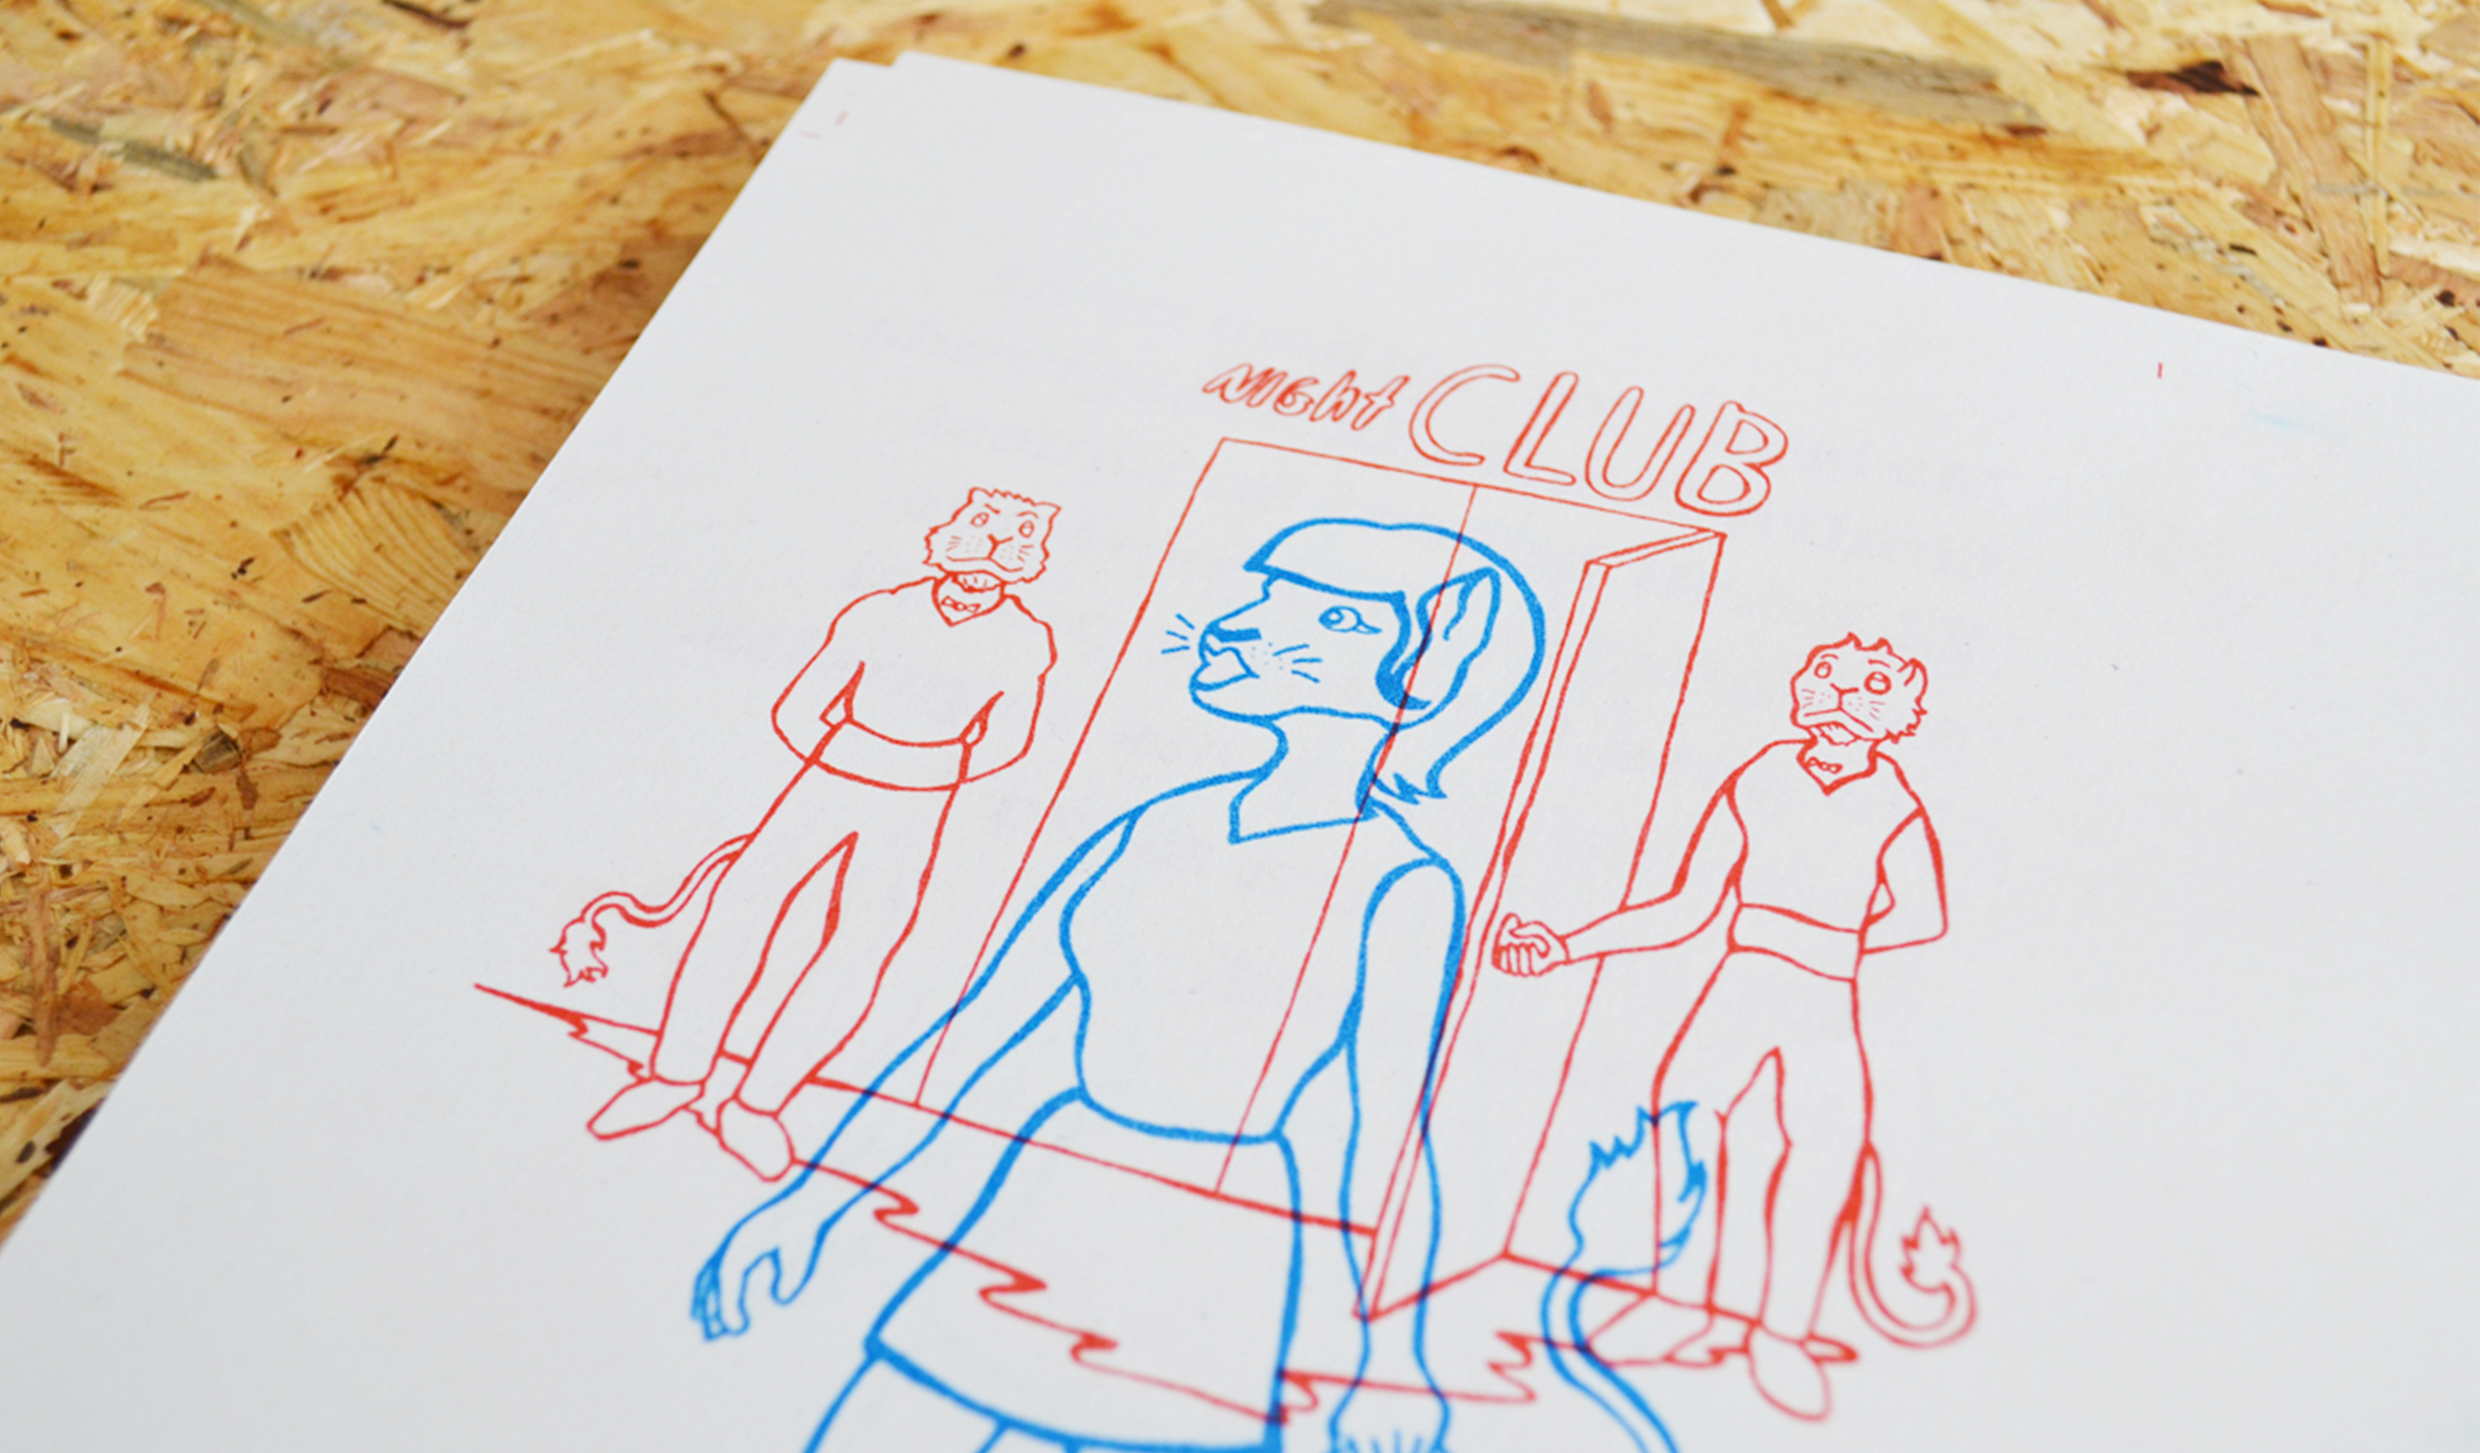 NIGht CLUB